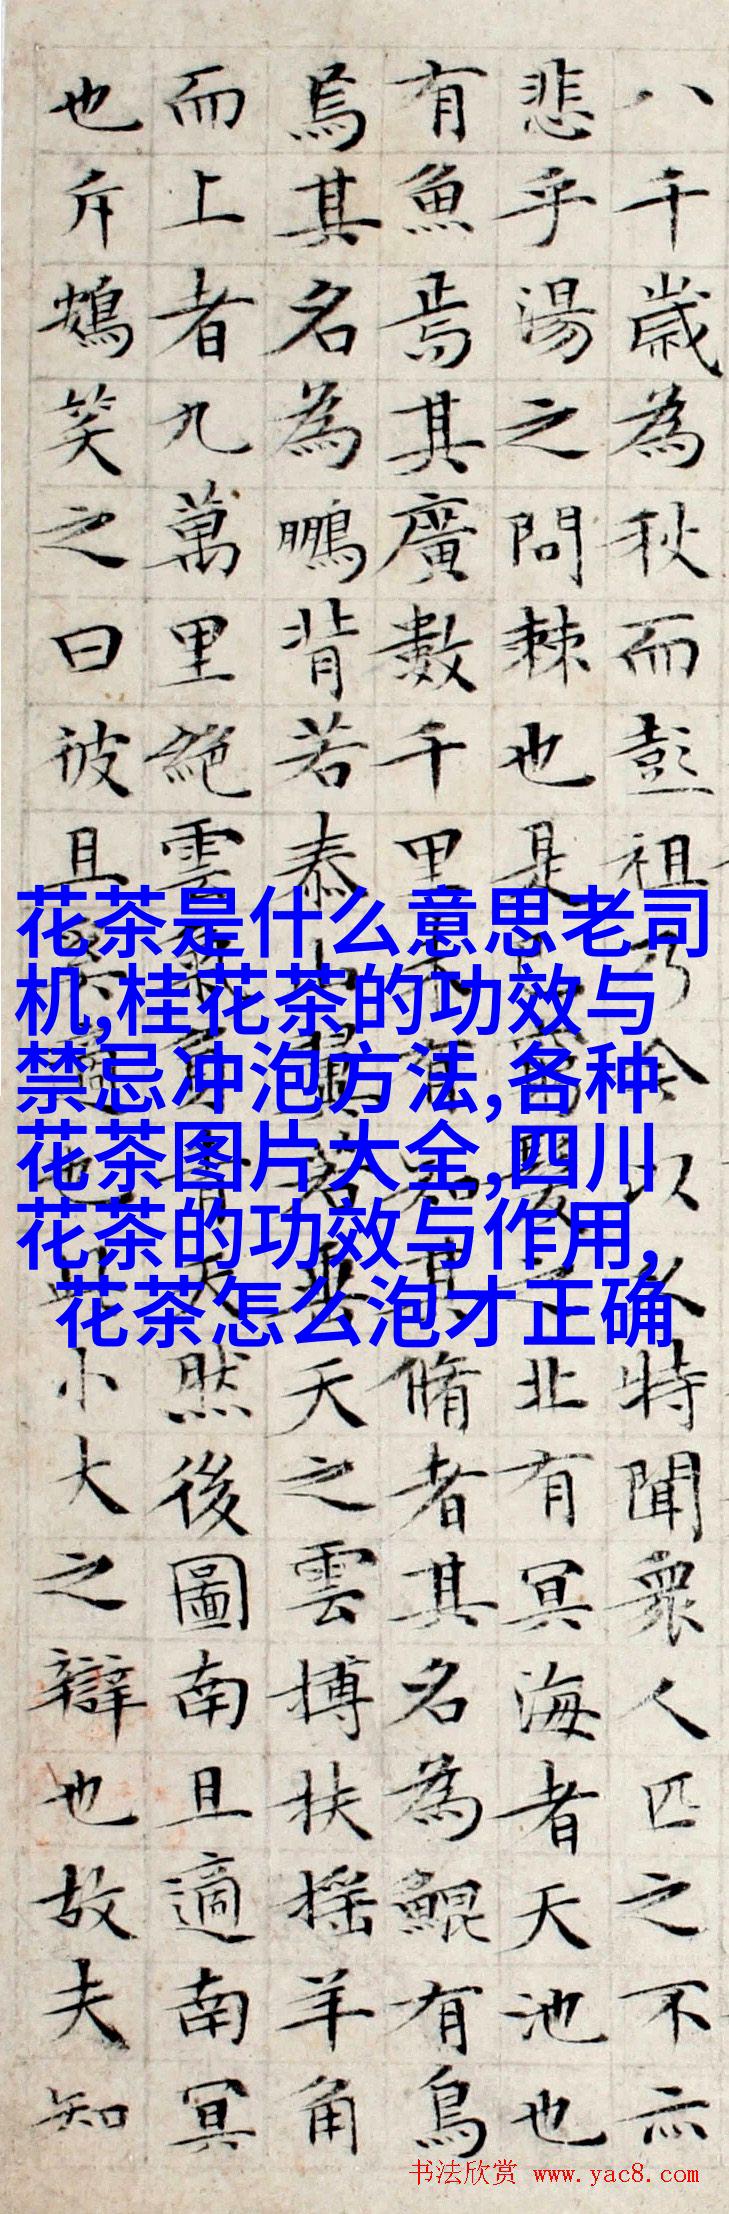 八千歲為秋而彭祖乃今以久特聞衆人匹之不亦
悲乎湯之問棘也是已窮髮之北有冥海者天池也
有魚焉其廣數千里未有知其脩者其名為鯤有鳥
焉其名為鵬背若泰山翼若垂天之雲搏扶摇羊角
而上者九萬里絕雲氣負青天然後圖南且適南冥
也斥鴳笑之曰彼且奚適也此小大之辯也故夫知
花茶是什么意思老司
机,桂花茶的功效与
禁忌冲泡方法,各种
花茶图片大全,四川
花茶的功效与作用,
花茶怎么泡才正确
书法欣赏 www.yac8.com